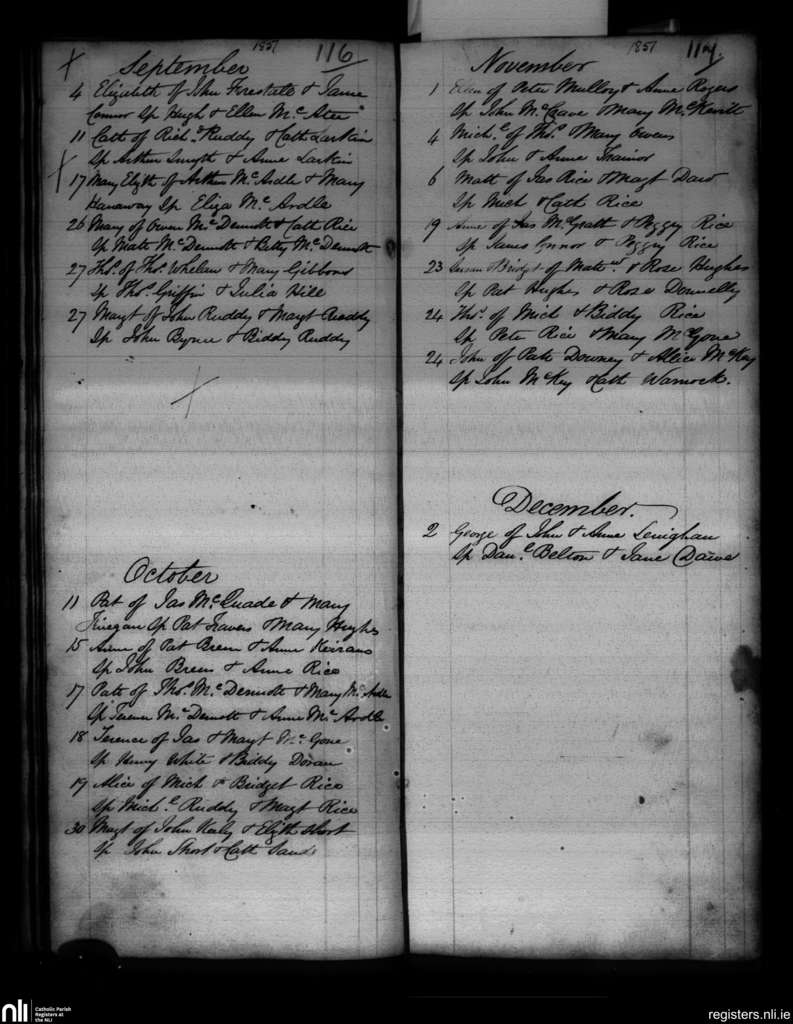 1851 116
September
4 Elizabeth of John Forestall & Jane
Connor Sp Hugh & Ellen McAtee
11 Cath of Richd Ruddy & Cath Larkin
Sp Arthur Smyth & Anne Larkin
17 Mary Elizth of Arthur McArdle & Mary
Sp Eliza McArdle
26 Mary of Owen McDermott & Cath Rice
Sp Matt McDermott & Betty McDermott
27 Thos. of Thos. Whelan & Mary Gibbons
Sp Thos. Griffin & Julia Hill
27 Margt of John Ruddy & Margt Ruddy
Sp John Byrne & Biddy Ruddy
October
11 Pat of Jas McQuade & Mary
Finegan Sp Pat Travers & Mary Hughes
15 Anne of Pat Breen & Anne Keirans
Sp John Breen & Anne Rice
17 Patk of Thos. McDermott & Mary McArdle
Sp Terence McDermott & Anne McArdle
18 Terence of Jas & Margt McGone
Sp Henry White & Biddy Doran
19 Alice of Mich & Bridget Rice
Sp Michl Ruddy & Margt Rice
30 Margt of John Kealy & Elizth Short
Sp John Short & Cath
1851 117.
November
1 Ellen of Peter Mulloy & Anne Rogers
Sp John & Mary McKevitt
4 Michl of Thos. & Mary Owens
Sp John & Anne Trainor
6 Matt of Jas Rice & Margt Daw
Sp Mich & Cath Rice
19 Anne of Jas McGratt & Peggy Rice
Sp James Connor & Peggy Rice
23 Susan & Bridget of Mattw & Rose Hughes
Sp Pat Hughes & Rose Donnelly
24 Thos. of Mich & Biddy Rice
Sp Peter Rice & Mary McGone
24 John of Patk Downey & Alice McKey
Sp John McKey & Cath Warnock.
December.
2 George of John & Anne Lenighan
Sp Danl Belton & Jane Dawe
nli Catholic Parish
Registers at
the NLI
registers.nli.ie